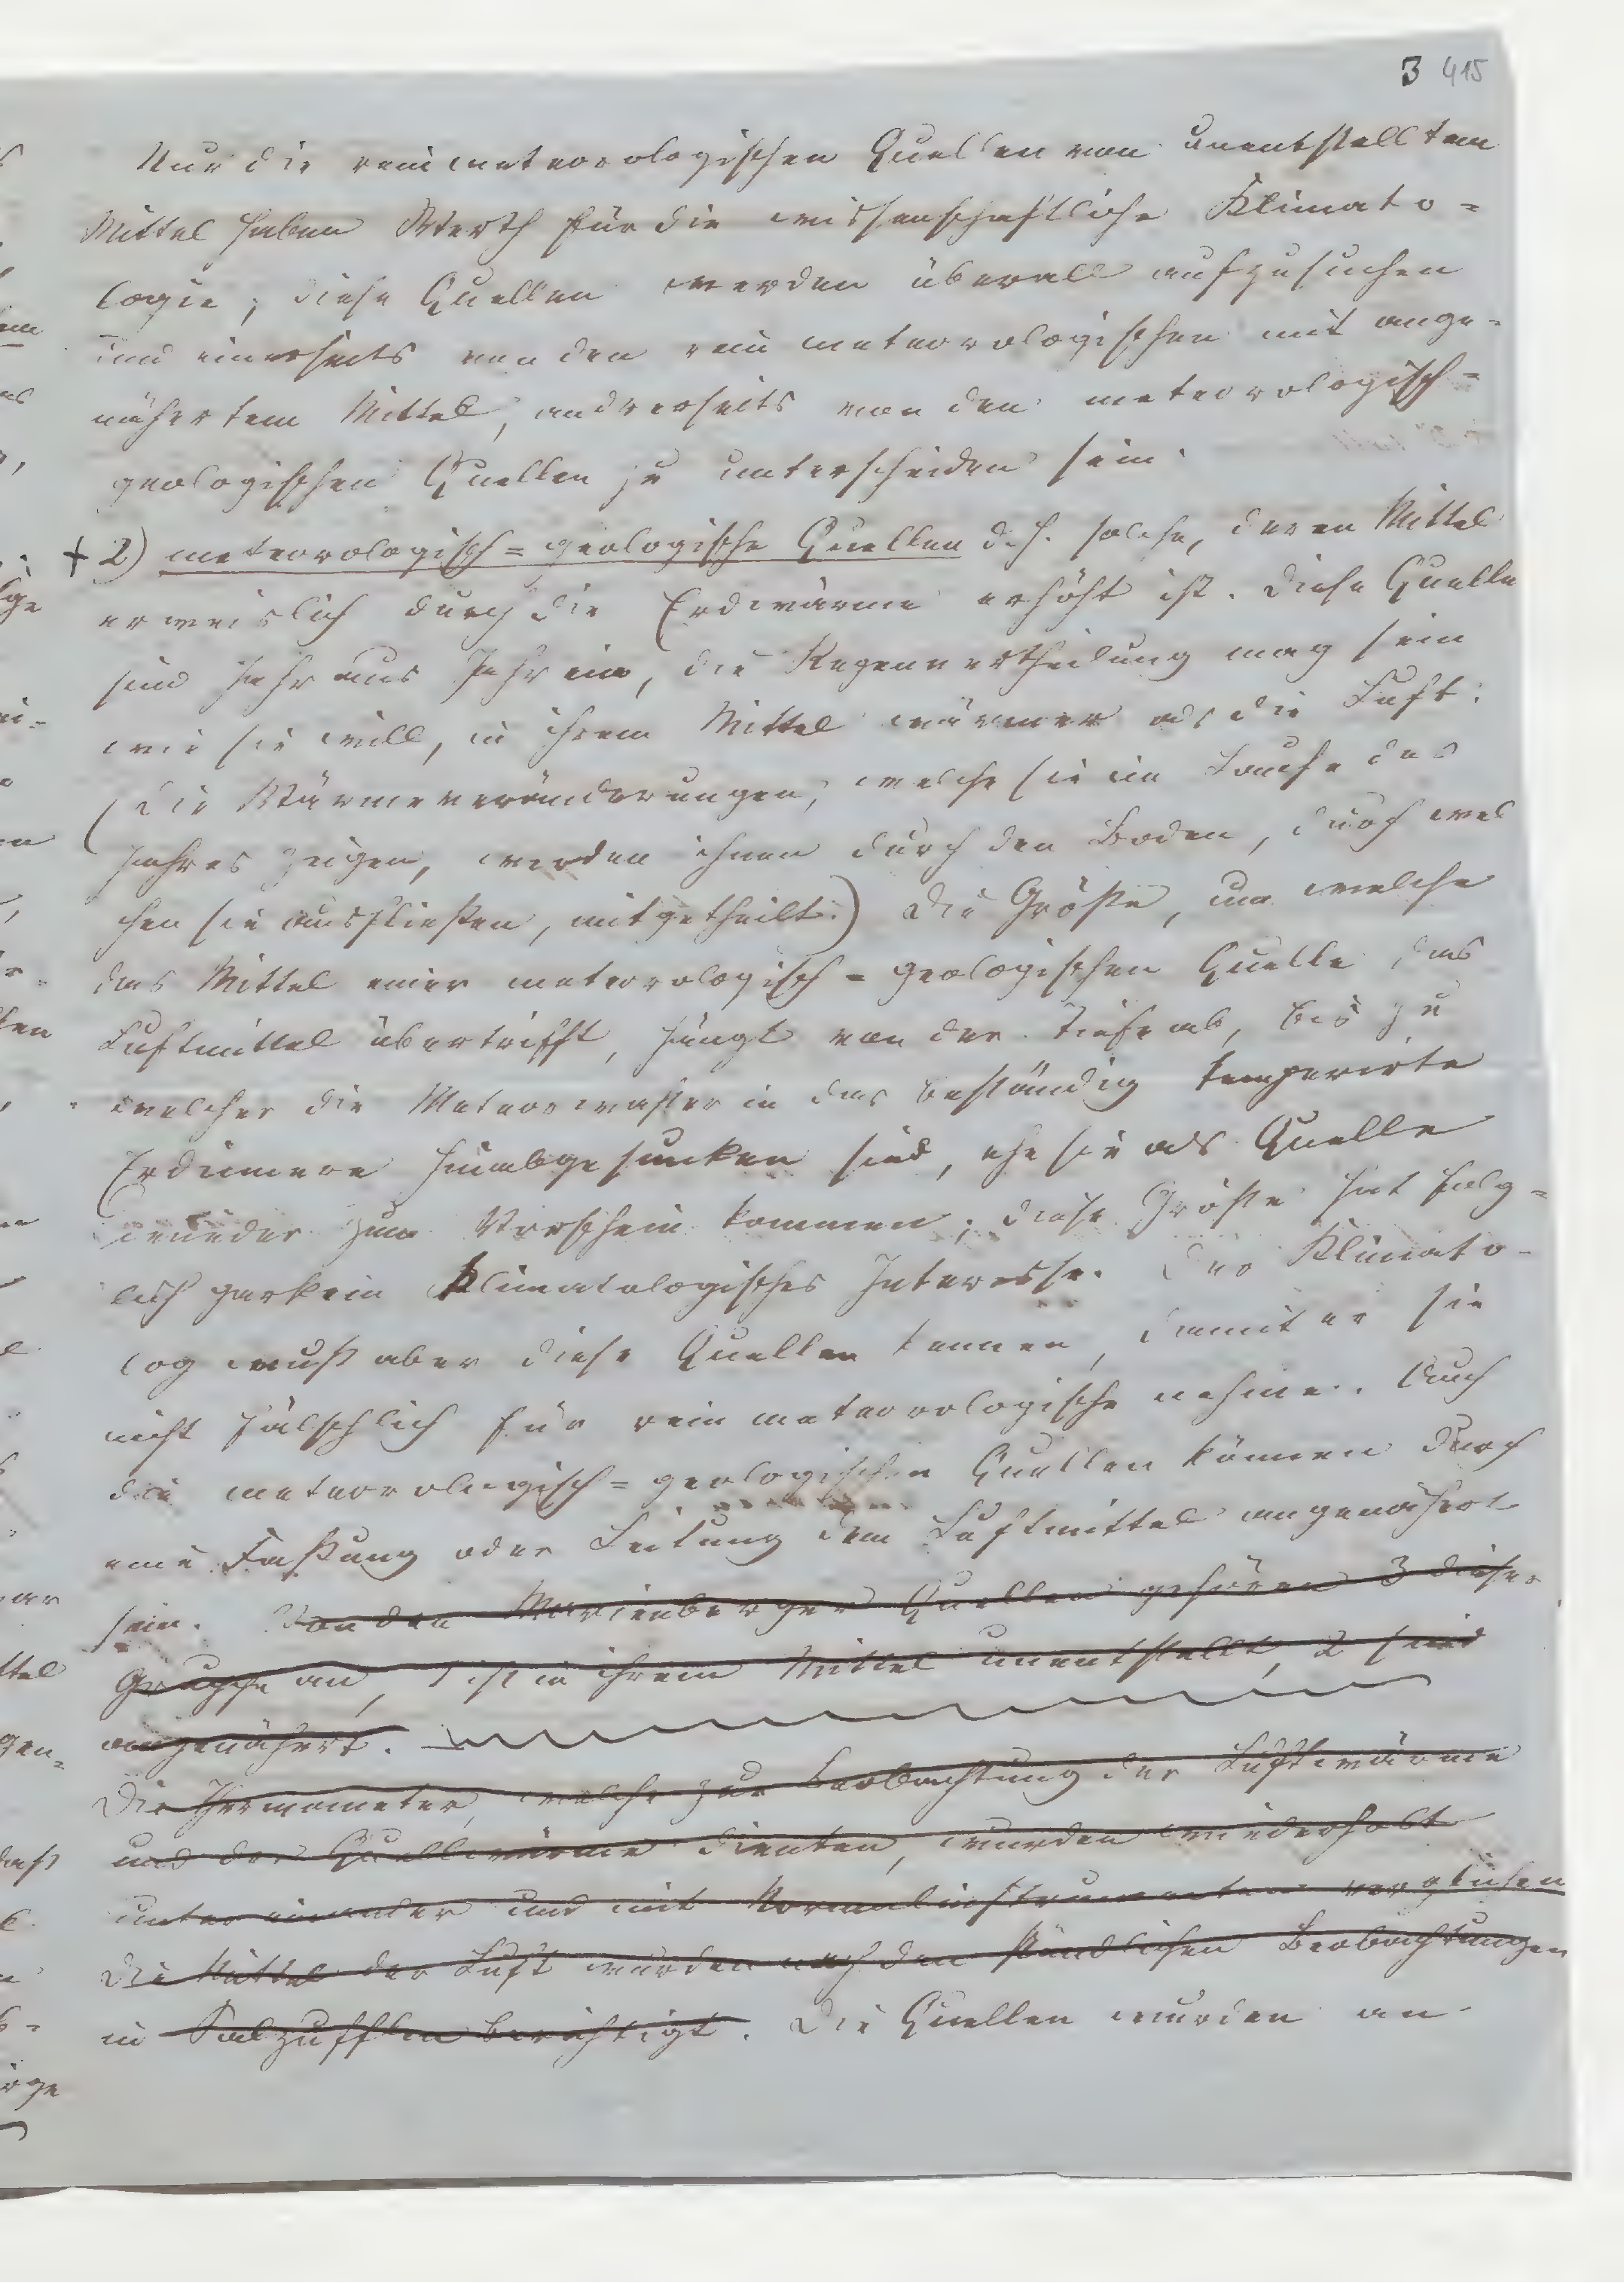 3 415
Nur die rein meteorologischen Quellen von unentstelltem
Mittel haben Werth für die wissenschaftliche Klimato=
logie; diese Quellen werden überall aufzusuchen
und einerseits von den rein meteorologischen mit ange=
nähertem Mittel, andrerseits von den meteorologisch=
geologischen Quellen zu unterscheiden sein.
+ 2) meteorologisch=geologische Quellen d. h. solche, deren Mittel
erweislich durch die Erdwärme erhöht ist. Diese Quellen
sind Jahr aus Jahr ein, die Regenvertheilung mag sein
wie sie will, in ihrem Mittel wärmer als die Luft.
(Die Wärmeveränderungen, welche sie im Laufe des
Jahres zeigen, werden ihnen durch den Boden, durch wel
chen sie ausfließen, mitgetheilt.) Die Größe, um welche
das Mittel einer meteorologisch=geologischen Quelle das
Luftmittel übertrifft, hängt von der Tiefe ab, bis zu
welcher die Meteorwasser in das beständig temperirte
Erdinnere hinabgesunken sind, ehe sie als Quelle
wieder zum Vorschein kommen; diese Größe hat folg=
lich gar kein klimatologisches Interesse. Der Klimato-
log muß aber diese Quellen kennen, damit er sie
nicht fälschlich für rein meteorologische nehme. Auch
die meteorologisch=geologischen Quellen können durch
eine Faßung oder Leitung dem Luftmittel angenähert
sein. Von den Marienberger Quellen gehören 3 dieser
Gruppe an, 1 ist in ihrem Mittel unentstellt, 2 sind
angenähert.
Die Thermometer, welche zur Beobachtung der Luftwärme
und der Quellwärme dienten, wurden wiederholt
unter einander und mit Normalinstrumenten verglichen
Die Mittel der Luft wurden nach den stündlichen Beobachtungen
in Salzufflen berichtigt. Die Quellen wurden an